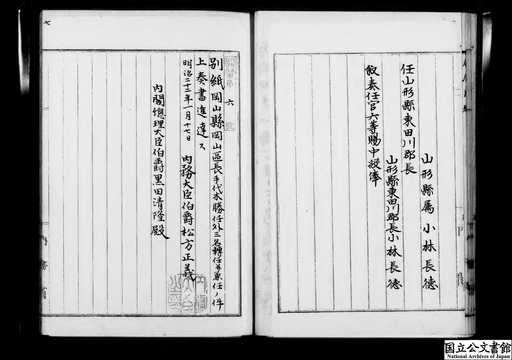 山形縣属 小林長徳
任山形縣東田川郡長
山形縣東田川郡長小林長徳
叙奏任官六等賜中級俸
別紙岡山縣岡山區長手代木勝任外三名轉任並兼任ノ件
上奏書進達ス
明治二十二年一月十七日
内務大臣伯爵松方正義
内閣總理大臣伯爵黒田清隆殿
国立公文書館
National Archives of Japan